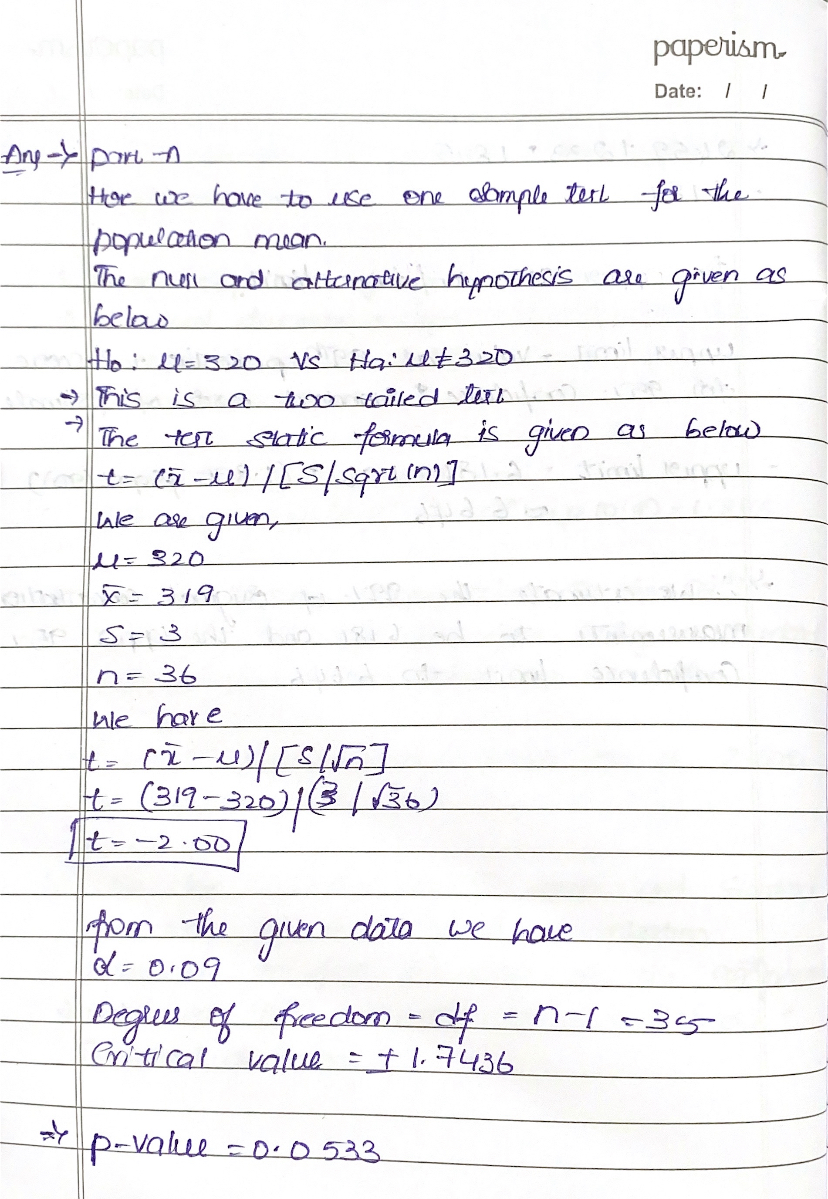 paperism
Date: / /
Ans → part -A
Here we have to use one sample test for the
population mean.
The null and alternative hypnothesis are given as
below
Ho : μ=320 Vs Ha: μ≠320
→ This is a two tailed test
→ The test static formula is given as below
t= (x̄ -μ) / [S/Sqrt (n)]
We are given,
μ= 320
x̄ = 319
S= 3
n= 36
We have
t= (x̄ -μ)/[S/√n]
t= (319-320)/(3 / √36)
t= -2.00
from the given data we have
α= 0.09
Degrees of freedom = df = n-1 = 35
Critical value = ± 1.7436
⇒ p-value = 0.0533